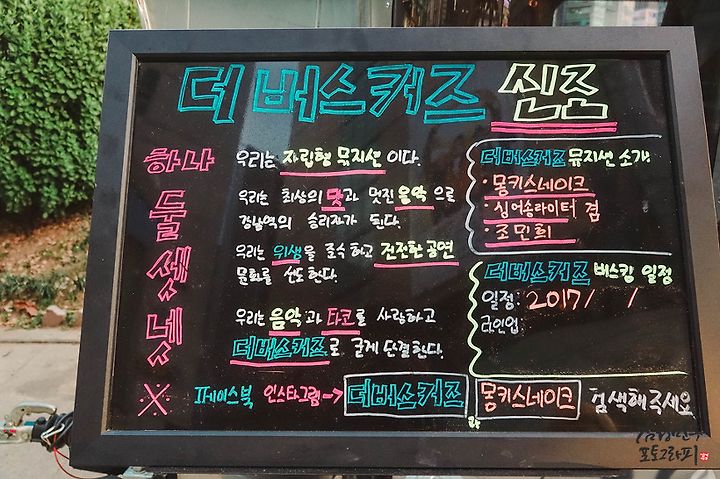 더 버스커즈 신조
하나 우리는 자립형 뮤지션 이다.
둘 우리는 최상의 맛과 멋진 음악 으로
강남역의 승리자가 된다.
셋 우리는 위생을 준수 하고 건전한 공연
문화를 선도한다.
넷 우리는 음악 과 타코를 사랑하고
더버스커즈로 굳게 단결한다.
더버스커즈 뮤지션 소개.
· 몽키스네이크
· 싱어송라이터 겸
· 조민희
더버스커즈 버스킹 일정
일정: 2017/ /
라인업:
※ 페이스북 인스타그램→ 더버스커즈 몽키스네이크 검색해주세요
포토그라피